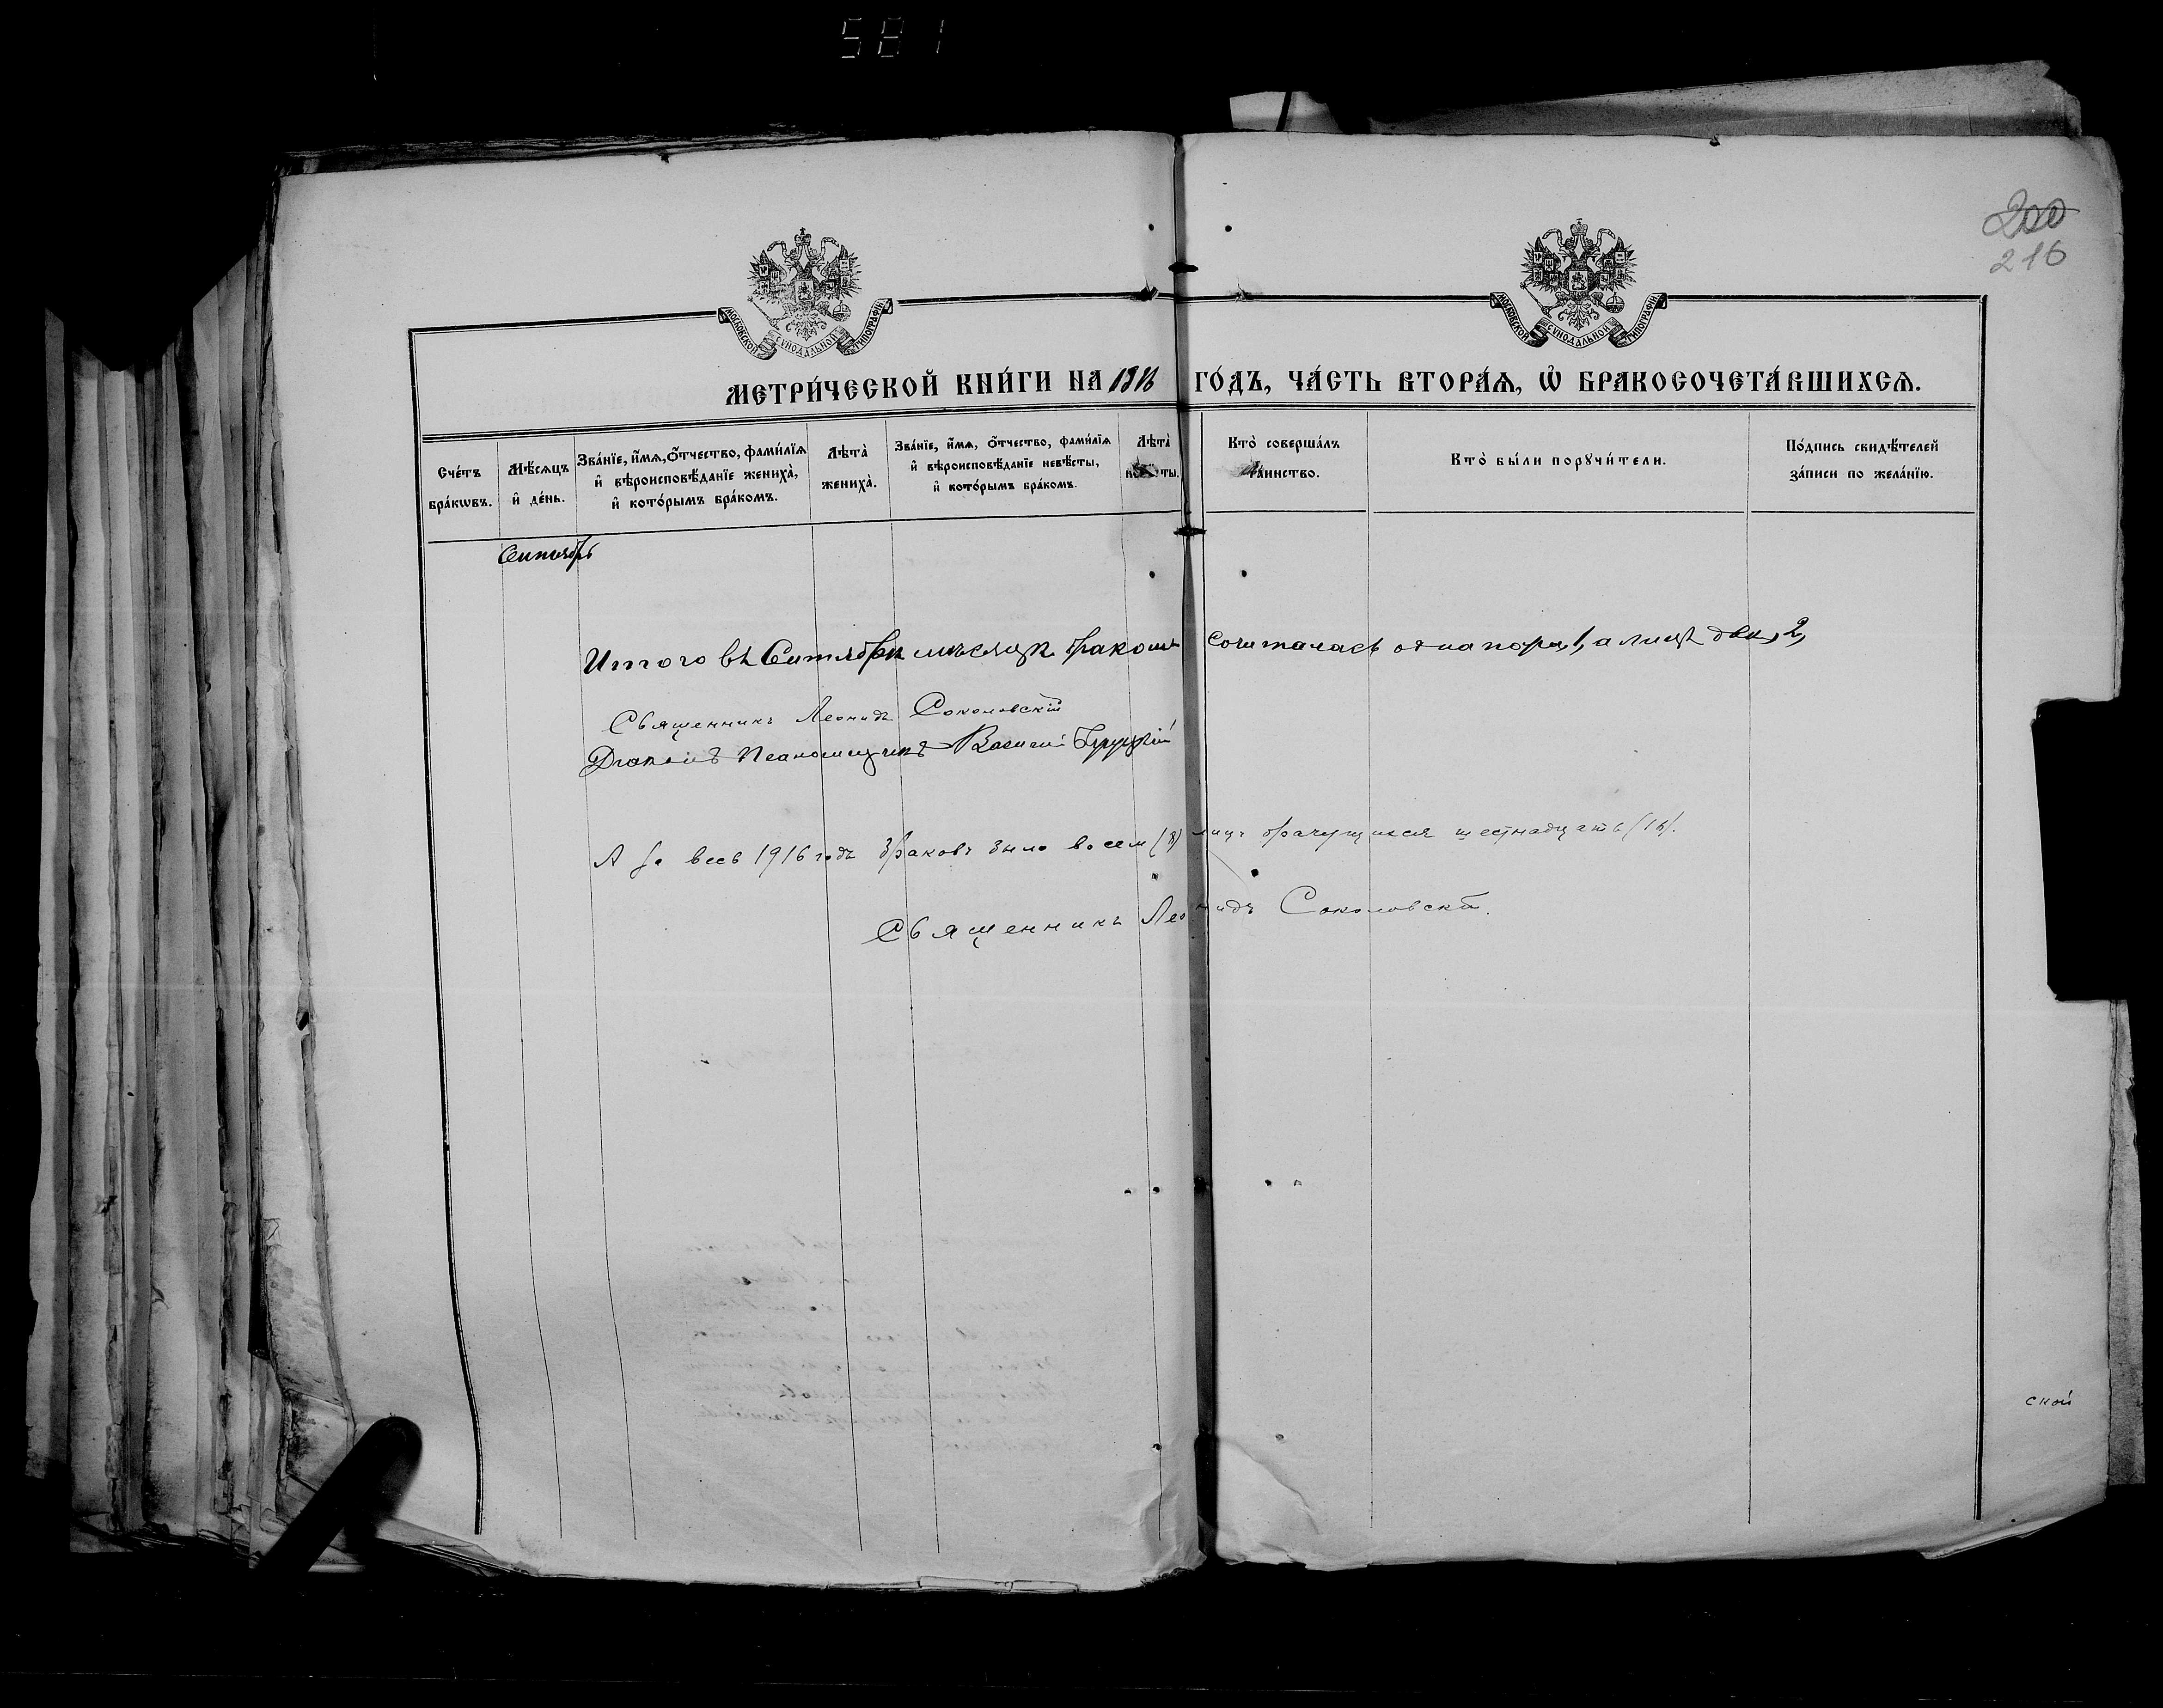 581
200
216
МОСКОВСКОЙ СѴНОДАЛЬНОЙ ТИПОГРАФІИ
МОСКОВСКОЙ СѴНОДАЛЬНОЙ ТИПОГРАФІИ
МЕТРИ́ЧЕСКОЙ КНИ́ГИ НА 1916 ГО́ДЪ, ЧА́СТЬ ВТОРА́Ѧ, Ѽ БРАКОСОЧЕТА́ВШИХСѦ.
Сче́тъ бра́кѡвъ.
Мѣ́сѧцъ и҆ де́нь.
Зва́нїе, и҆́мѧ, ѻ҆́тчество, фами́лїѧ и҆ вѣроисповѣ́данїе жениха̀, и҆ кото́рымъ бра́комъ.
Лѣта̀ жениха̀.
Зва́нїе, и҆́мѧ, ѻ҆́тчество, фами́лїѧ и҆ вѣроисповѣ́данїе невѣ́сты, и҆ кото́рымъ бра́комъ.
Лѣта̀ невѣ́сты.
Кто̀ соверша́лъ та́инство.
Кто̀ бы́ли порꙋчи́тели.
По́дпись свидѣ́телей за́писи по жела́нїю.
Сентябрь
Итого въ Сентябрѣ мѣсяцѣ бракомъ сочеталась одна пара, 1, а лицъ два, 2,
Священникъ Леонидъ Соколовскій
Діаконъ Псаломщикъ Василій
А за весь 1916 годъ браковъ было восем (8) лицъ брачущихся шестнадцать (16).
Священникъ Леонидъ Соколовскій.
ской